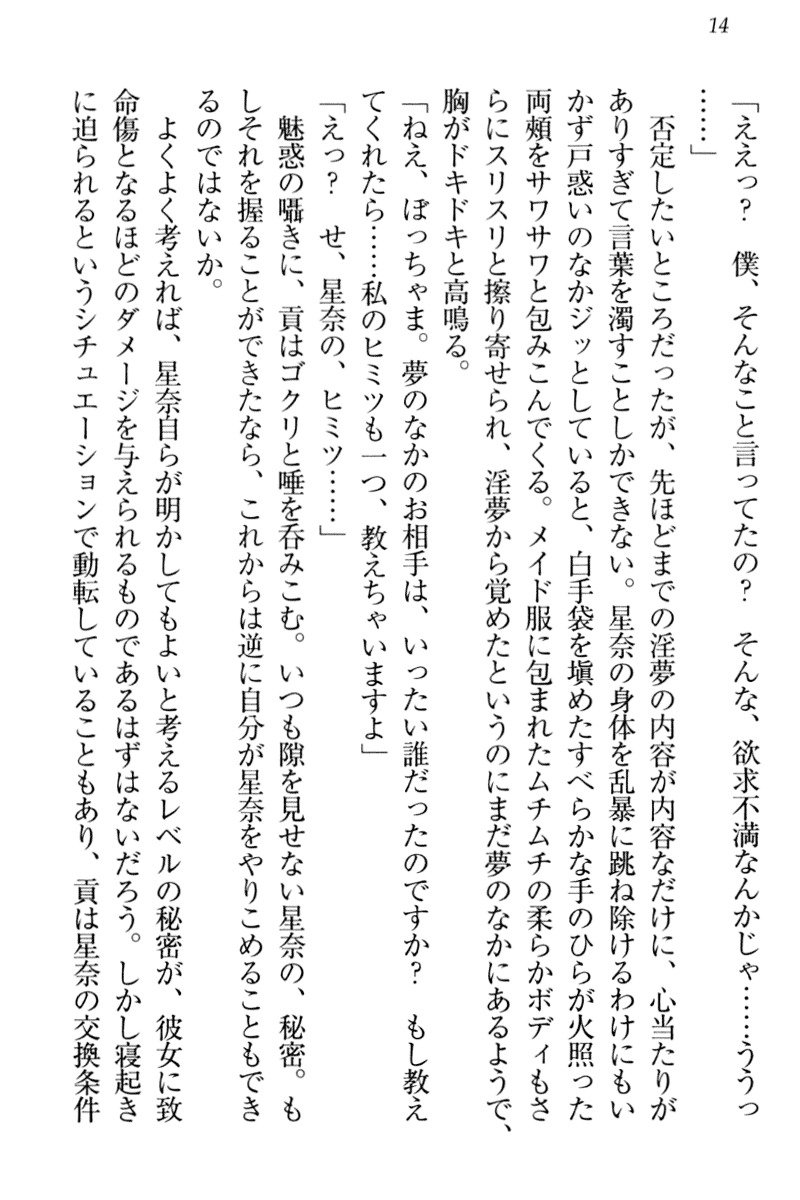 14
「ええっ？　僕、そんなこと言ってたの？　そんな、欲求不満なんかじゃ……ううっ
……」
　否定したいところだったが、先ほどまでの淫夢の内容が内容なだけに、心当たりが
ありすぎて言葉を濁すことしかできない。星奈の身体を乱暴に跳ね除けるわけにもい
かず戸惑いのなかジッとしていると、白手袋を填めたすべらかな手のひらが火照った
両頰をサワサワと包みこんでくる。メイド服に包まれたムチムチの柔らかボディもさ
らにスリスリと擦り寄せられ、淫夢から覚めたというのにまだ夢のなかにあるようで、
胸がドキドキと高鳴る。
「ねえ、ぼっちゃま。夢のなかのお相手は、いったい誰だったのですか？　もし教え
てくれたら……私のヒミツも一つ、教えちゃいますよ」
「えっ？　せ、星奈の、ヒミツ……」
　魅惑の囁きに、貢はゴクリと唾を呑みこむ。いつも隙を見せない星奈の、秘密。も
しそれを握ることができたなら、これからは逆に自分が星奈をやりこめることもでき
るのではないか。
　よくよく考えれば、星奈自らが明かしてもよいと考えるレベルの秘密が、彼女に致
命傷となるほどのダメージを与えられるものであるはずはないだろう。しかし寝起き
に迫られるというシチュエーションで動転していることもあり、貢は星奈の交換条件